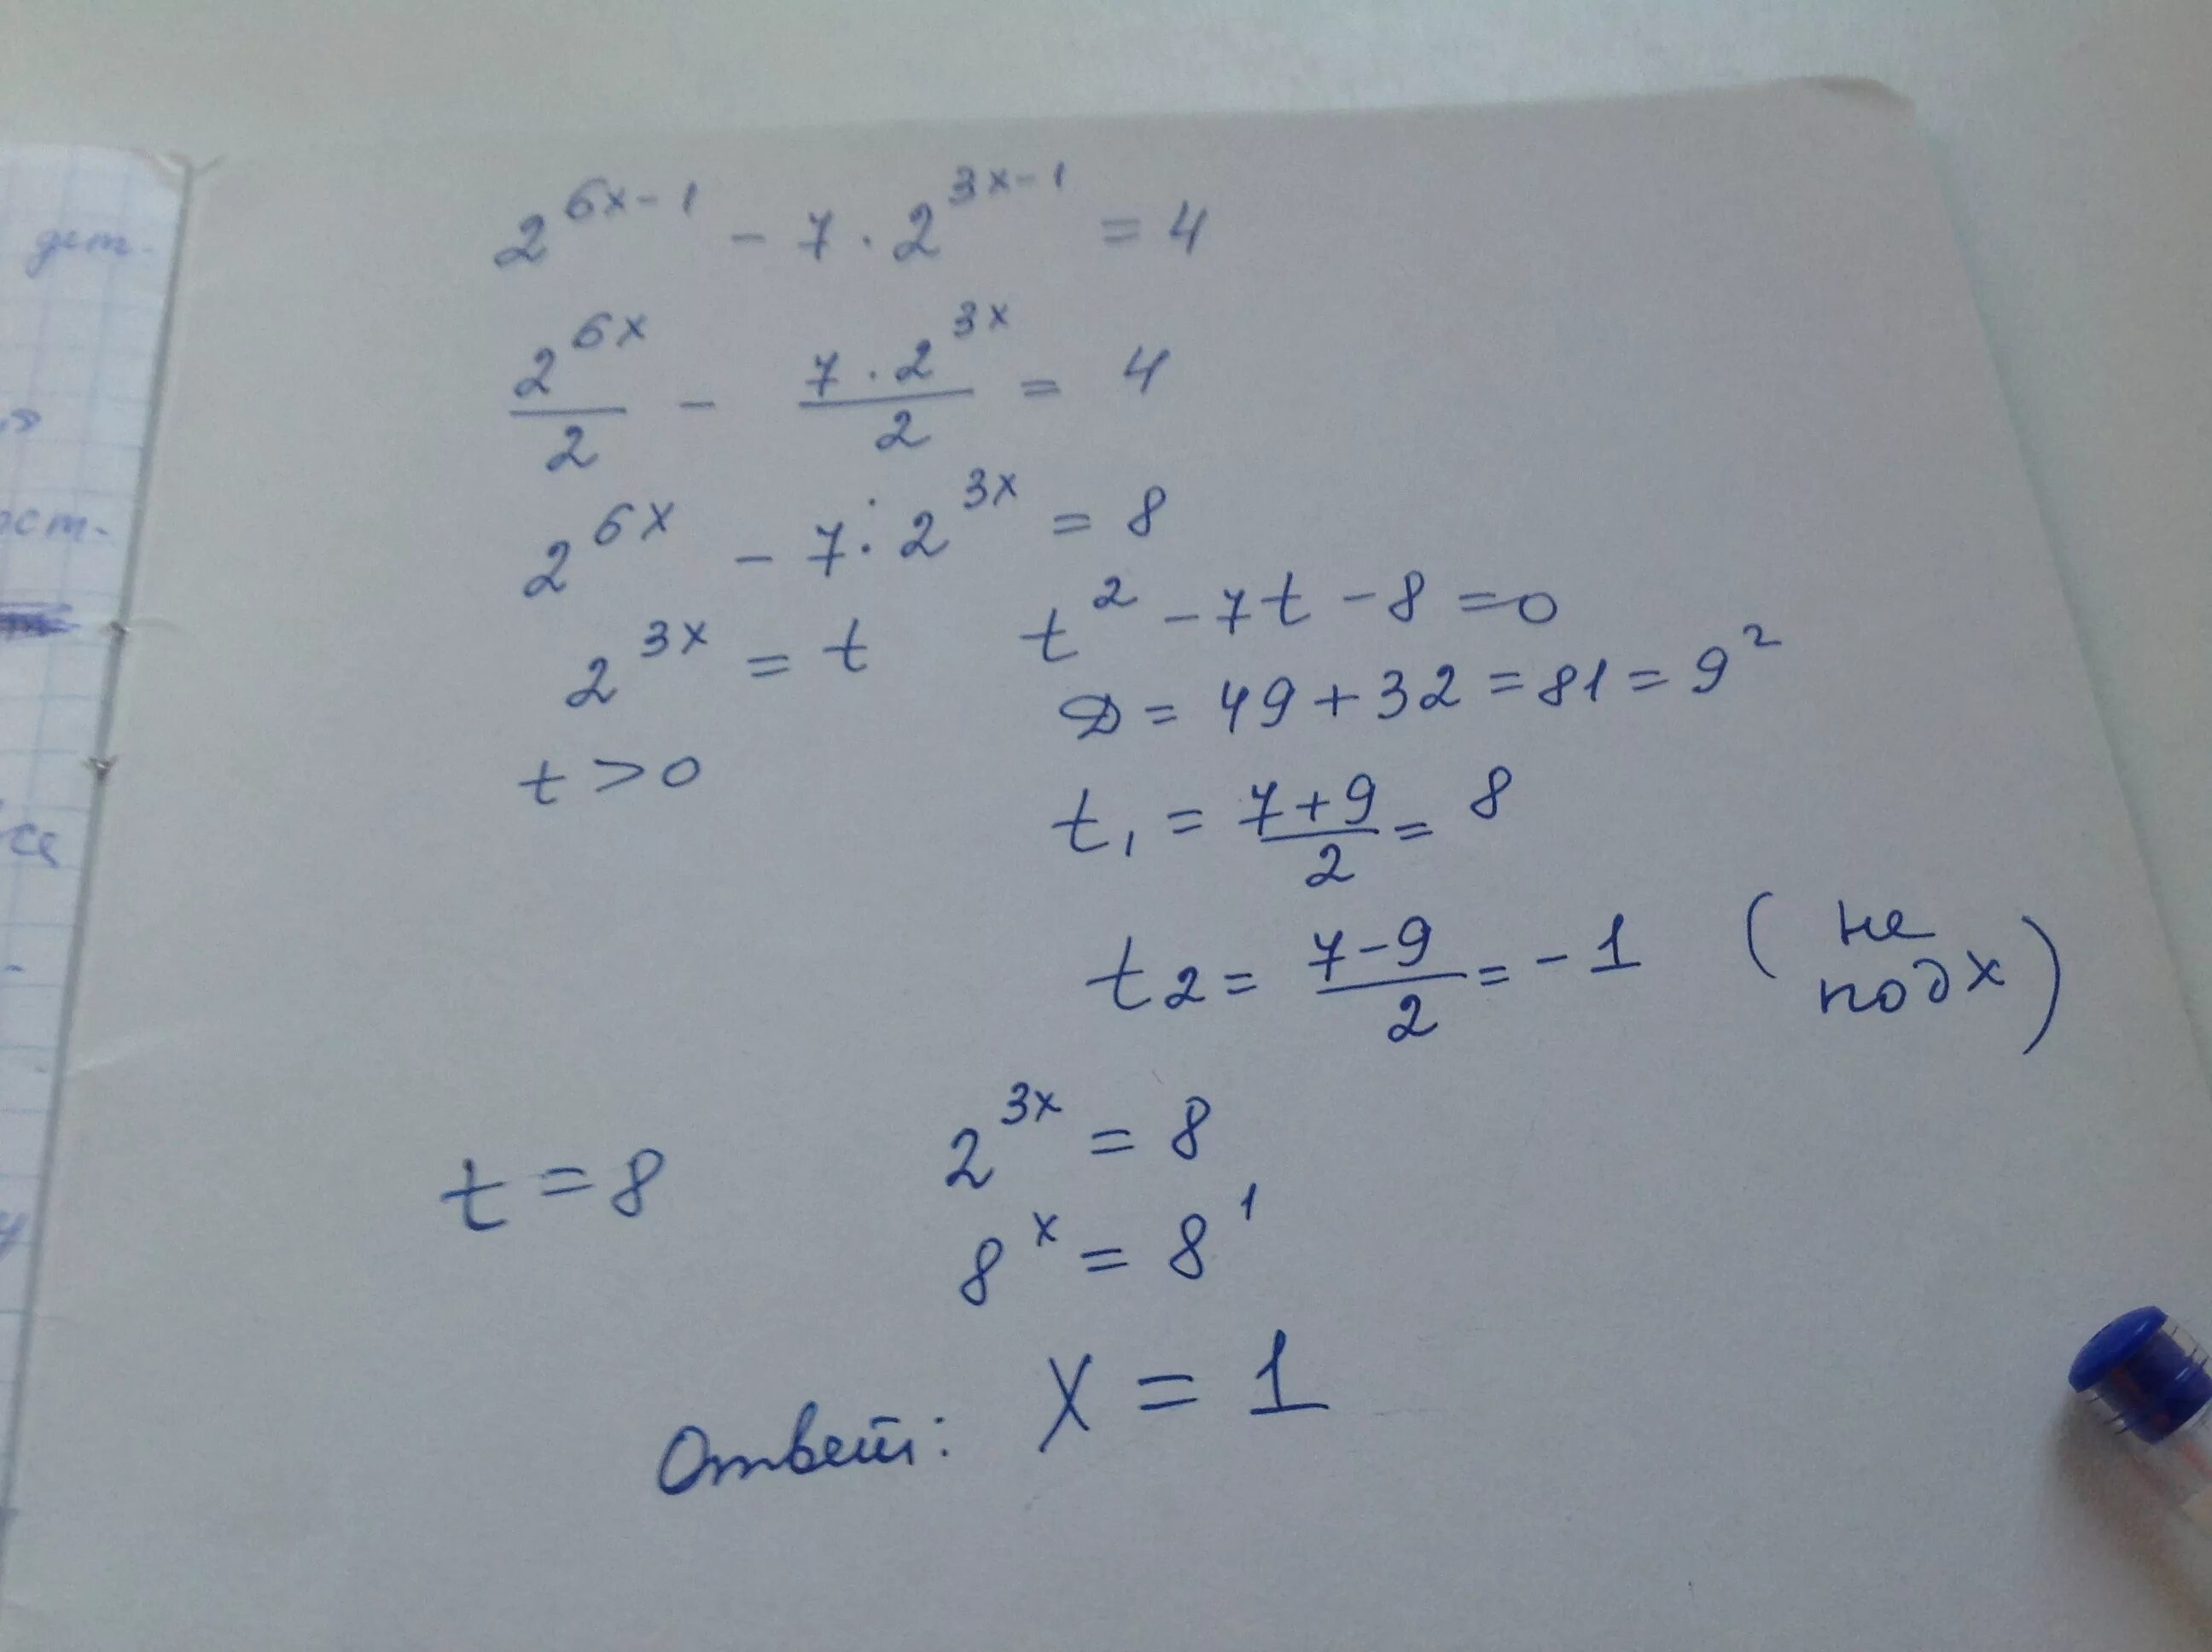 дет.
2^{6x-1} - 7 · 2^{3x-1} = 4
\frac{2^{6x}}{2} - \frac{7 · 2^{3x}}{2} = 4
2^{6x} - 7 · 2^{3x} = 8
2^{3x} = t
t > 0
t^2 - 7t - 8 = 0
D = 49 + 32 = 81 = 9^2
t_1 = \frac{7+9}{2} = 8
t_2 = \frac{7-9}{2} = -1 (не подх)
t = 8
2^{3x} = 8
8^x = 8^1
Ответ: x = 1